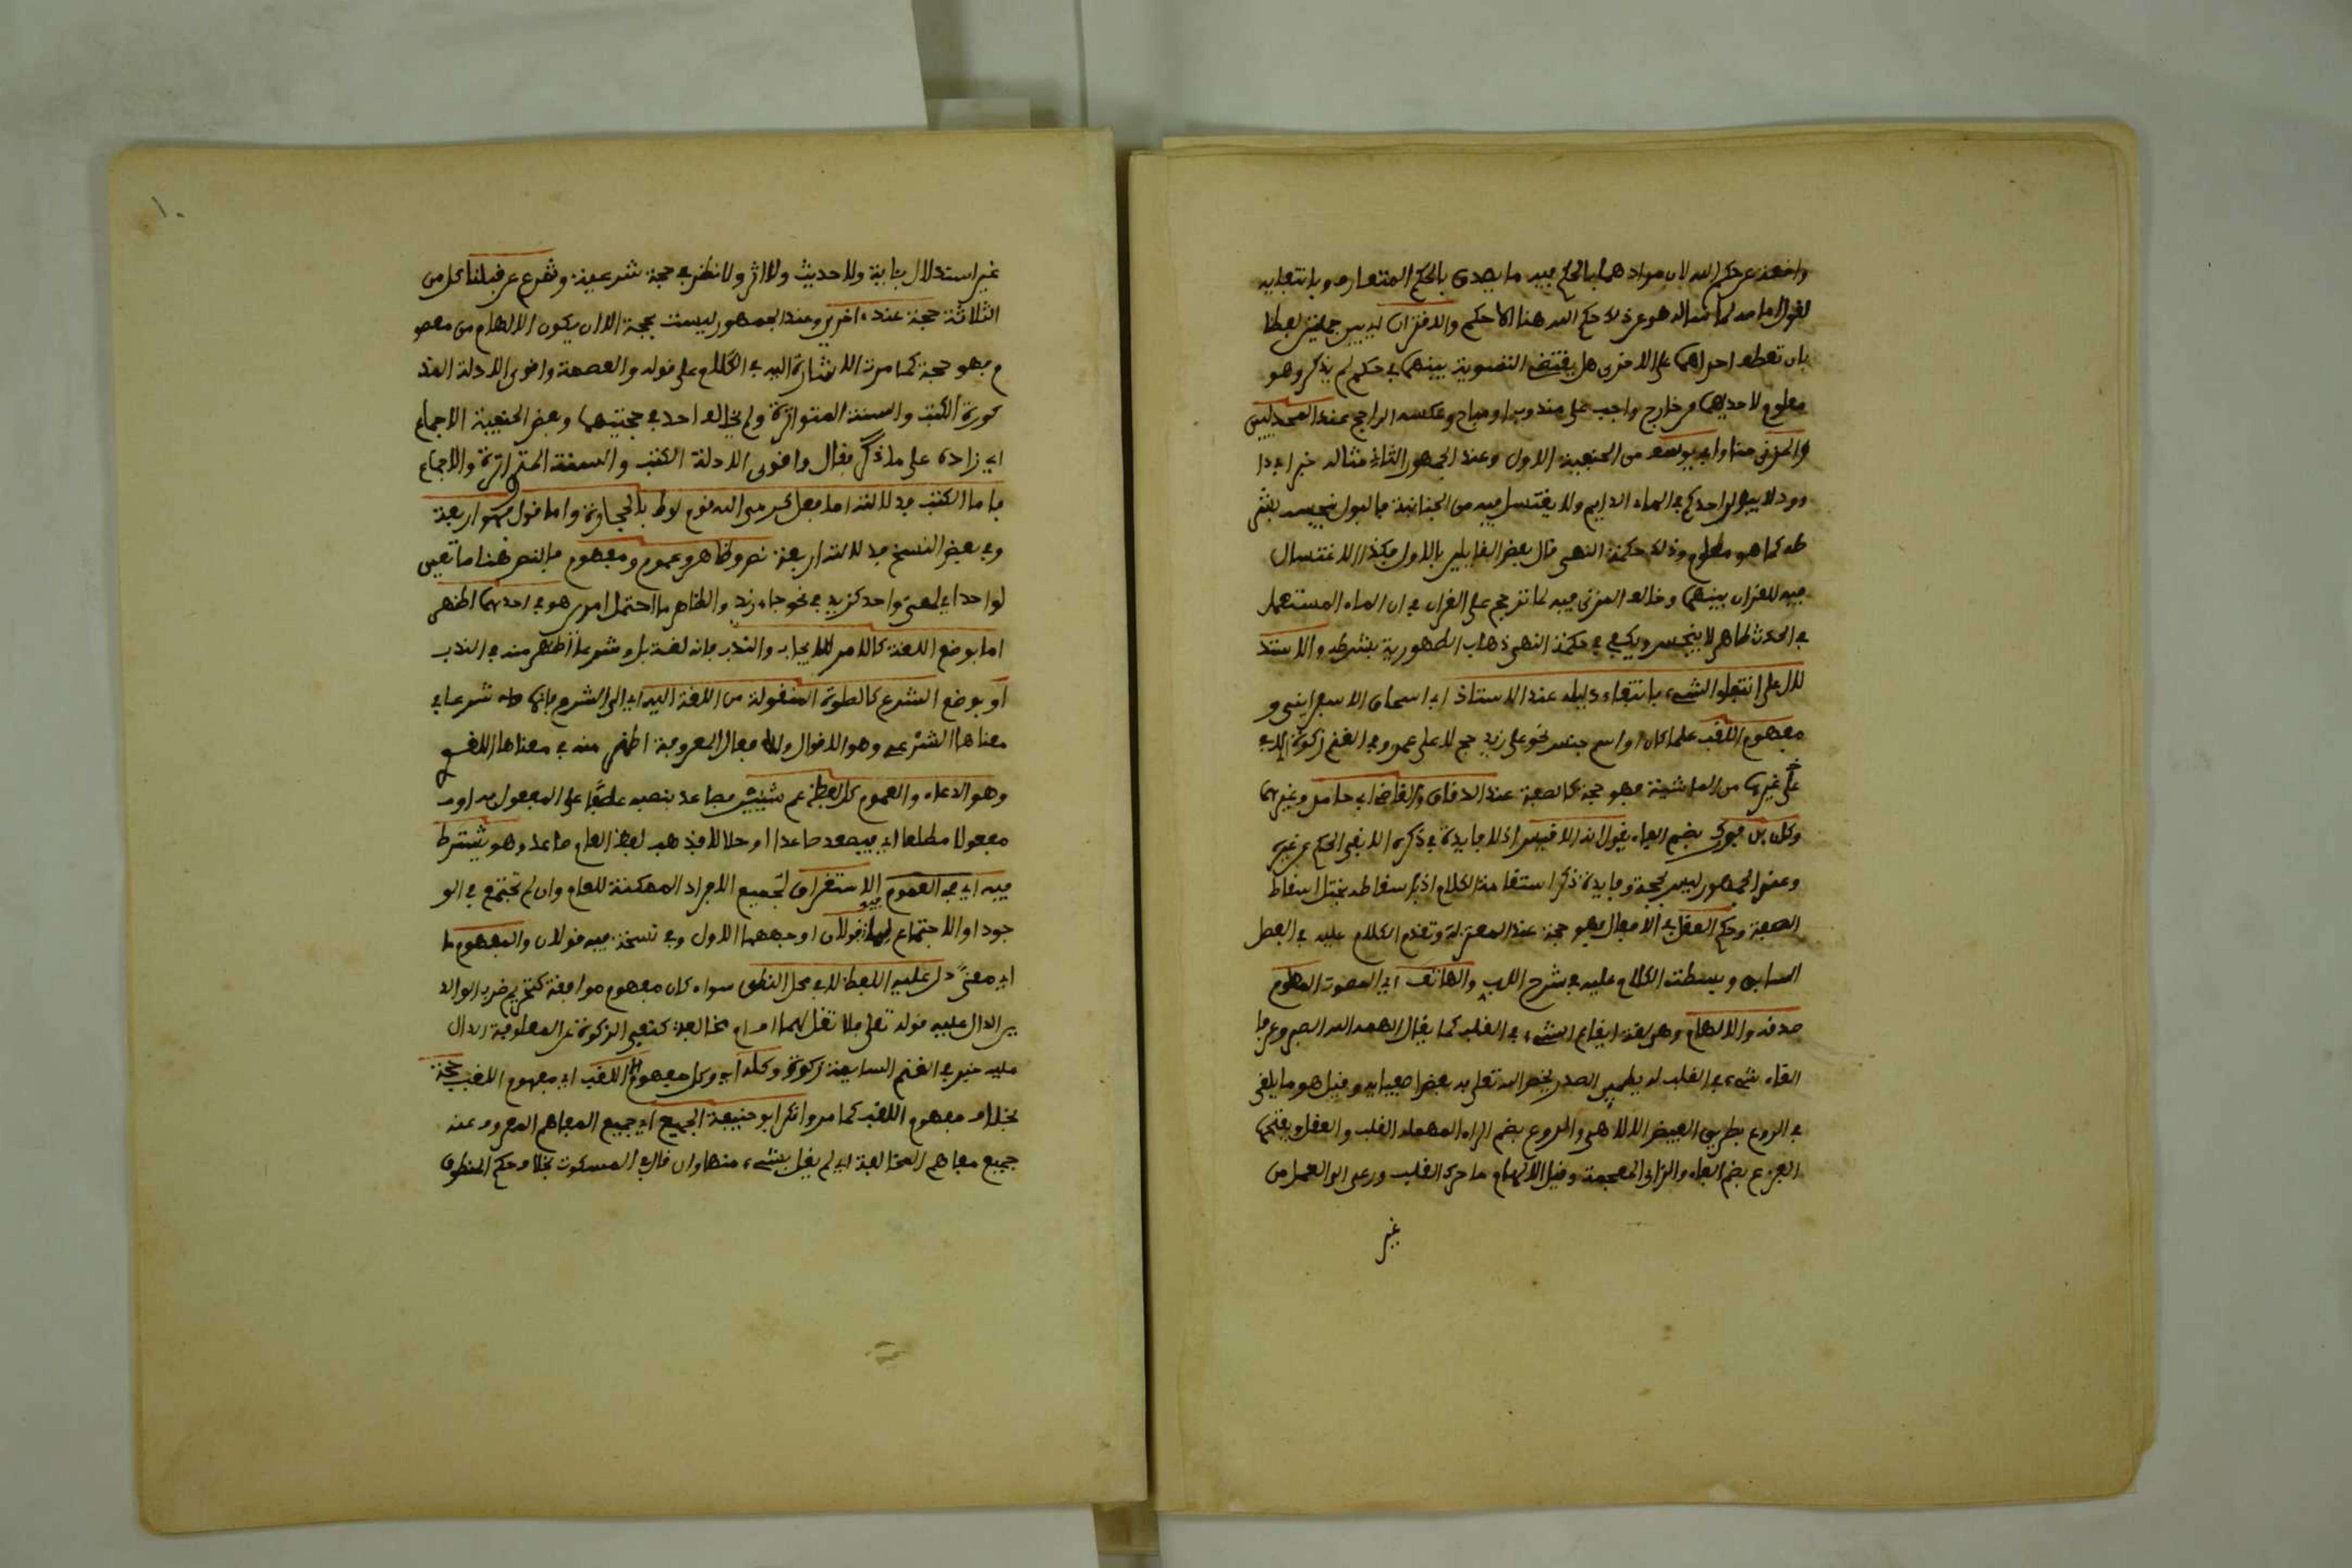 وافعة عن حكم الله لان مرادهما بالحكم فيه ما يصدق بالحكم المتعارف وبانتفائه
لقول امامه لما سأله هو عن ذلك حكم الله هنا الا حكم والاقتران اي بين جملتين لفظا
بان تعطف احداهما على الاخرى هل يقتضي التسوية بينهما في حكم لم يذكر وهو
معلوم لاحديهما من خارج واجب على مندوب او مباح وعكسه الراجح عند
والمزني منا وابي يوسف من الحنفية الاول وعند الجمهور الثاني مثاله خبر ابي دا
وود لا يبولن احدكم في الماء الدايم ولا يغتسل فيه من الجنابة فالبول ينجسه بشر
طه كما هو معلوم وذلك حكمة النهي قال بعض القايلين بالاول فكذا الاغتسال
فيه للقران بينهما وخالف المزني فيه لما ترجح على القران في ان الماء المستعمل
في الحدث طاهر لا ينجس ويكفي في حكمة النهي ذهاب الطهورية بشرطه والاستد
لال على انتفاء الشيء بانتفاء دليله عند الاستاذ ابي اسحاق الاسفرايني و
مفهوم اللقب علما كان او اسم جنس نحو على زيد حج لا على عمرو وفي الغنم زكوة اي لا في
غيرها من الماشية فهو حجة كالصفة عند الدقاق والقاضي ابي حامد وغيرهما
وكابن فورك بضم الفاء يقول انه الاقيس اذ لا فايدة في ذكره الا نفي الحكم عن غيره
وعند الجمهور ليس بحجة وفايدة ذكره استقامة الكلام اذ باسقاطه يختل اسقاط
الصفة وحكم العقل في الافعال فهو حجة عند المعتزلة وتقدم الكلام عليه في الفصل
السابق وبسطت الكلام عليه في شرح اللب والهاتف اي الصوت المعلوم
صدقه والالهام وهو لغة ايقاع الشيء في القلب كما يقال الهمه الله الصبر وعرفا
القاء شيء في القلب له يطمين الصدر يخص الله تعلى به بعض اصفيايه وقيل هو ما يلقى
في الروع بطريق الفيض الالاهي والروع بضم الراء المهملة القلب والعقل وبفتحها
الفزع بضم الفاء والزاي المعجمة وقيل الالهام ما حرك القلب ودعى الى العمل من
غير
غير استدلال بئاية ولا حديث ولا اثر ولا نظر في حجة شرعية وشرع من قبلنا كل من
الثلاثة حجة عند ءاخرين وعند الجمهور ليست بحجة الا ان يكون الالهام من معصو
م فهو حجة كما مرت الاشارة اليه في الكلام على قوله والعصمة واقوى الادلة المذ
كورة الكتب والسنة المتواترة ولم يخالف احد في حجيتهما وبعض الحنفية الاجماع
اي زاده على ما ذكر فقال واقوى الادلة الكتب والسنة المتواترة والاجماع
فاما الكتب فدلالته اما فعل كرمي الله قوم لوط بالحجارة واما قول وهو اربعة
وفي بعض النسخ فدلالته اربعة نص وظاهر وعموم ومفهوم فالنص هنا ما تعين
لواحد اي لمعنى واحد كزيد في نحو جاء زيد والظاهر ما احتمل امرين هو في احدهما اظهر
اما بوضع اللغة كالامر للايجاب والندب فانه لغة بل وشرعا اظهر منه في الندب
او بوضع الشرع كالصلوة المنقولة من اللغة اليه اي الى الشرع فانها شرعا في
معناها الشرعي وهو الاقوال والافعال المعروفة اظهر منه في معناها اللغوي
وهو الدعاء والعموم كل لفظ عم شيئين فصاعدا بنصبه عطفا على المفعول به او
مفعولا مطلقا اي فيصعد صاعدا او حالا اي فذهب لفظ العام صاعدا وهو يشترط
فيه اي في العموم الاستغراق لجميع الافراد الممكنة للعام وان لم تجتمع في الو
جود او الاجتماع فيه قولان اوجههما الاول وفي نسخة فيه قولان والمفهوم ما
اي معنًى دل عليه اللفظ لا في محل النطق سواء كان مفهوم موافقة كتحريم ضرب الوالد
ين الدال عليه قوله تعلى فلا تقل لهما اف ام مخالفة كنفي الزكوة عن المعلوفة الدال
عليه خبر في الغنم السايمة زكوة وكله اي وكل مفهوم الا اللقب اي مفهوم اللقب حجة
بخلاف مفهوم اللقب كما مر وانكر ابو حنيفة الجميع اي جميع المفاهم المعروف عنه
جميع مفاهم المخالفة اي لم يقل بشيء منها وان قال في المسكوت بخلاف حكم المنطوق